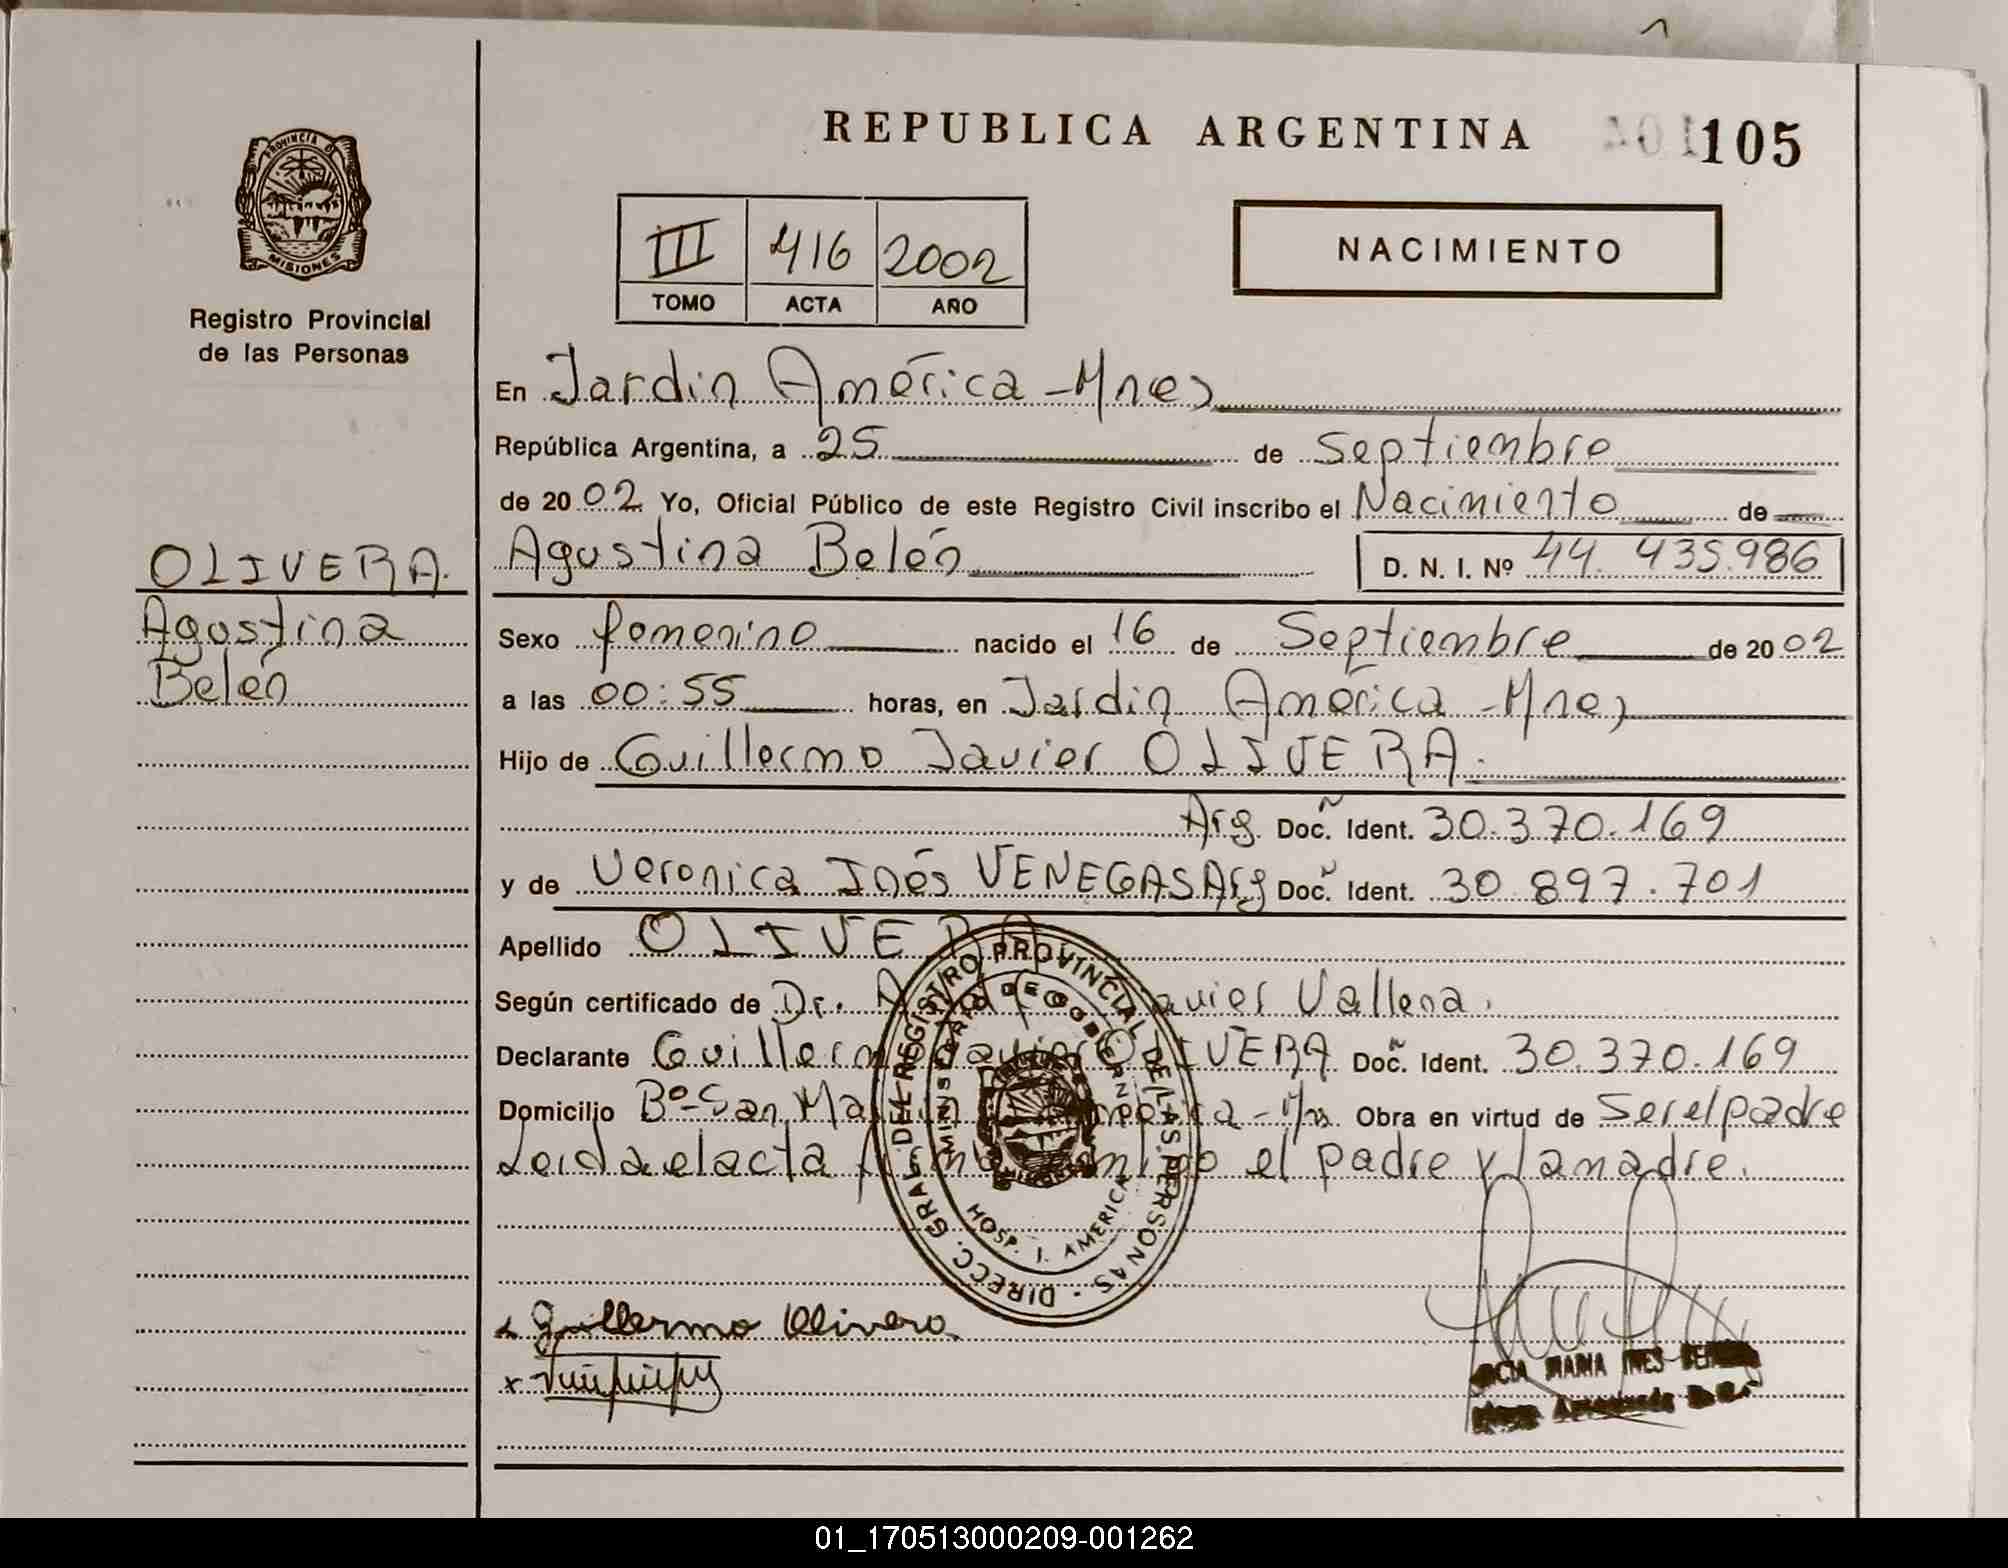 REPUBLICA ARGENTINA
105
PROVINCIA D
MISIONES
Registro Provincial
de las Personas
III 416 2002
TOMO ACTA AÑO
NACIMIENTO
En Jardin América - Mnes
República Argentina, a 25 de Septiembre
de 2002 Yo, Oficial Público de este Registro Civil inscribo el Nacimiento de
Agustina Belén D. N. I. Nº 44.435.986
OLIVERA.
Agustina
Belén
Sexo femenino nacido el 16 de Septiembre de 2002
a las 00:55 horas, en Jardin América - Mnes
Hijo de Guillermo Javier OLIVERA.
Arg. Doc. Ident. 30.370.169
y de Veronica Inés VENEGAS Arg Doc. Ident. 30.897.701
Apellido OLIVERA
Según certificado de Dr. Javier Vallena.
Declarante Guillermo Javier OLIVERA Doc. Ident. 30.370.169
Domicilio Bº San Martin América - Obra en virtud de Ser el padre
Leida el acta el padre y la madre.
DIRECC. GRAL. DEL REGISTRO PROVINCIAL DE LAS PERSONAS
MINISTERIO DE GOBIERNO
HOSP. J. AMERICA
Guillermo Olivera
MARIA INES
01_170513000209-001262